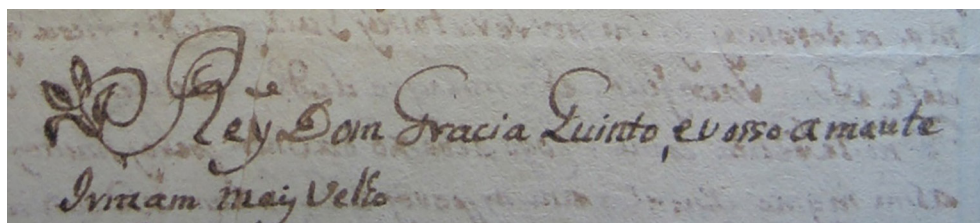 Rey Dom Gracia Quinto, e vosso amante
Irmam maij Velho